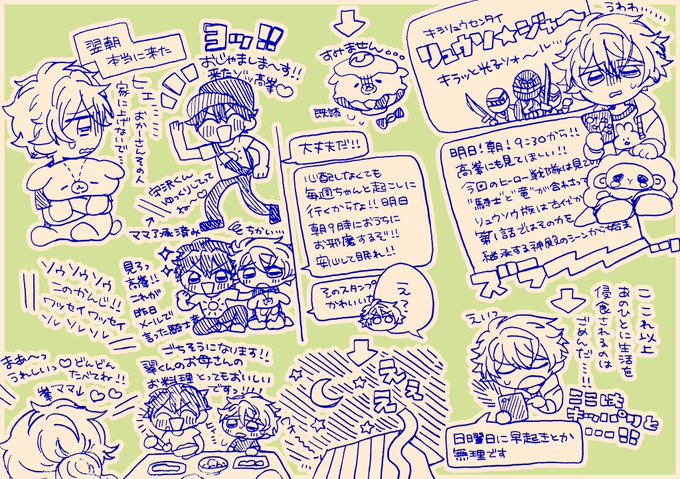 うわわ……
キシリュウセンタイ
リュウソ☆ジャ～
キラッと光るソォ～ル…
明日!朝!9:30から!!
高峯にも見てほしい!!
今回のヒーロー戦隊は見ての
"騎士"と"竜"が合わさって
リュウソウ族は古代か
第1話ではその力を
継承する神殿のシーンから始ま
ここれ以上
あのひとに生活を
侵食されるのは
ごめんだ…!!
えいっ
ここはキッパリと
……!!
日曜日に早起きとか
無理です
すみません…
既読
大丈夫だ!!
心配しなくても
毎週ちゃんと起こしに
行くからな!!明日
朝9時におうちに
お邪魔するぞ!!
安心して眠れ!!
そのスタンプ
かわいいな
え
ええ
翌朝
本当に来た
ヒェ……
おかーさんその人
家に上げないで…
ヨッ!!
おじゃましま～す!!
来たゾッ高峯♡
守沢くん
ゆっくりしてって
ね～♡
ママ了承済み
ちかい…
見ろっ
高峯!
これが
昨日
メールで
言った騎士竜
ソウソウソウ
このかんじ!!
ワッセイワッセイ
ソソソソソ
ごちそうになります!!
翠くんのお母さんの
お料理とってもおいしい
です!!
まあ～っ
うれしいっ♡どんどん
たべてね!!
峯ママ